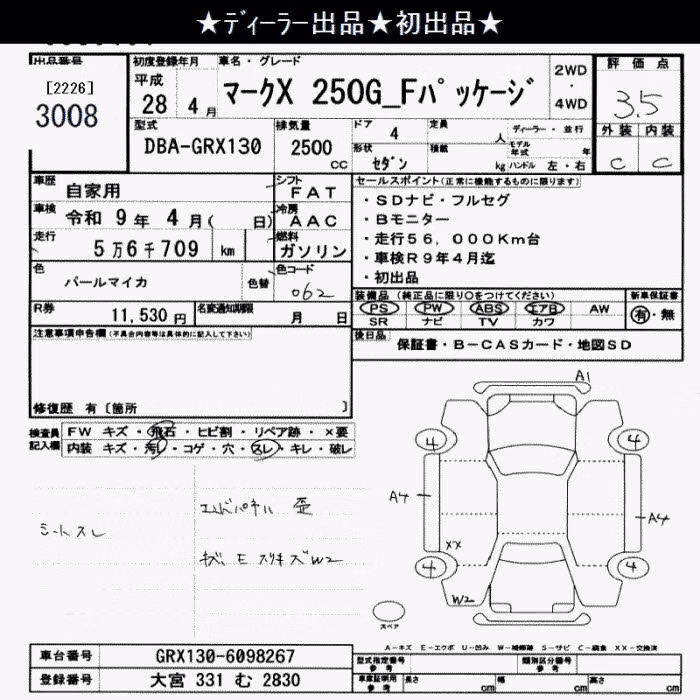 ★ディーラー出品★初出品★
出品番号
[2226]
3008
初度登録年月
平成
28 4月
車名・グレード
マークX 250G_Fパッケージ
2WD
・
4WD
評価点
3.5
外装 内装
C C
型式
DBA-GRX130
排気量
2500
CC
ドア 4
形状
セダン
定員
人
積載
kg
ディーラー・並行
モデル年式 年
ハンドル 左・右
車歴 自家用
シフト FAT
車検 令和 9年 4月( 日)
冷房 AAC
走行 5万6千709 km
燃料 ガソリン
色 パールマイカ
色替
色コード
062
R券 11,530円
名変通知期限 月 日
セールスポイント(正常に機能するものに限ります)
・SDナビ・フルセグ
・Bモニター
・走行56,000Km台
・車検R9年4月迄
・初出品
装備品 (純正品に限り○をつけてください)
PS PW ABS エアB AW
SR ナビ TV カワ
新車保証書
有・無
後日品
保証書・B-CASカード・地図SD
注意事項申告欄(不具合内容等は具体的に記入して下さい)
修復歴 有〔箇所 〕
検査員記入欄
FW キズ・飛石・ヒビ割・リペア跡・×要
内装 キズ・汚レ・コゲ・穴・スレ・キレ・破レ
シートスレ
エンドパネル 歪
キズ E スリキズ W2
A1
4 4
A4 A4
XX
4 4
W2
スペア
A-キズ E-エクボ U-凹み W-補修跡 S-サビ C-腐食 XX-交換済
車台番号 GRX130-6098267
登録番号 大宮 331 む 2830
型式指定番号
参考
類別区分番号
参考
車庫証明用
参考
長さ cm 幅 cm 高さ cm